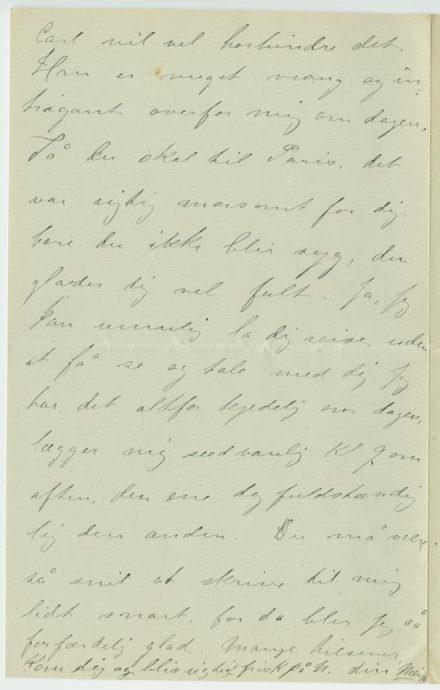 Carl vil vel forhindre det
Han er meget vrang og in-
trigant overfor mig om dagen.
Så du skal til Paris, det
var rigtig morsomt for dig.
bare du ikke blir syg, du
glæder dig vel fælt. Ja, jeg
kan umulig la dig reise uden
at få se og tale med dig. Jeg
har det altfor kjedelig om dagen,
lægger mig sædvanlig Kl 9 om
aften, den ene dag fuldstændig
lig den anden. Du må være
så snil at skrive til mig
lidt snart, for da blir jeg så
forfærdelig glad. Mange hilsener
Kom dig og bliv rigtig frisk på N. din